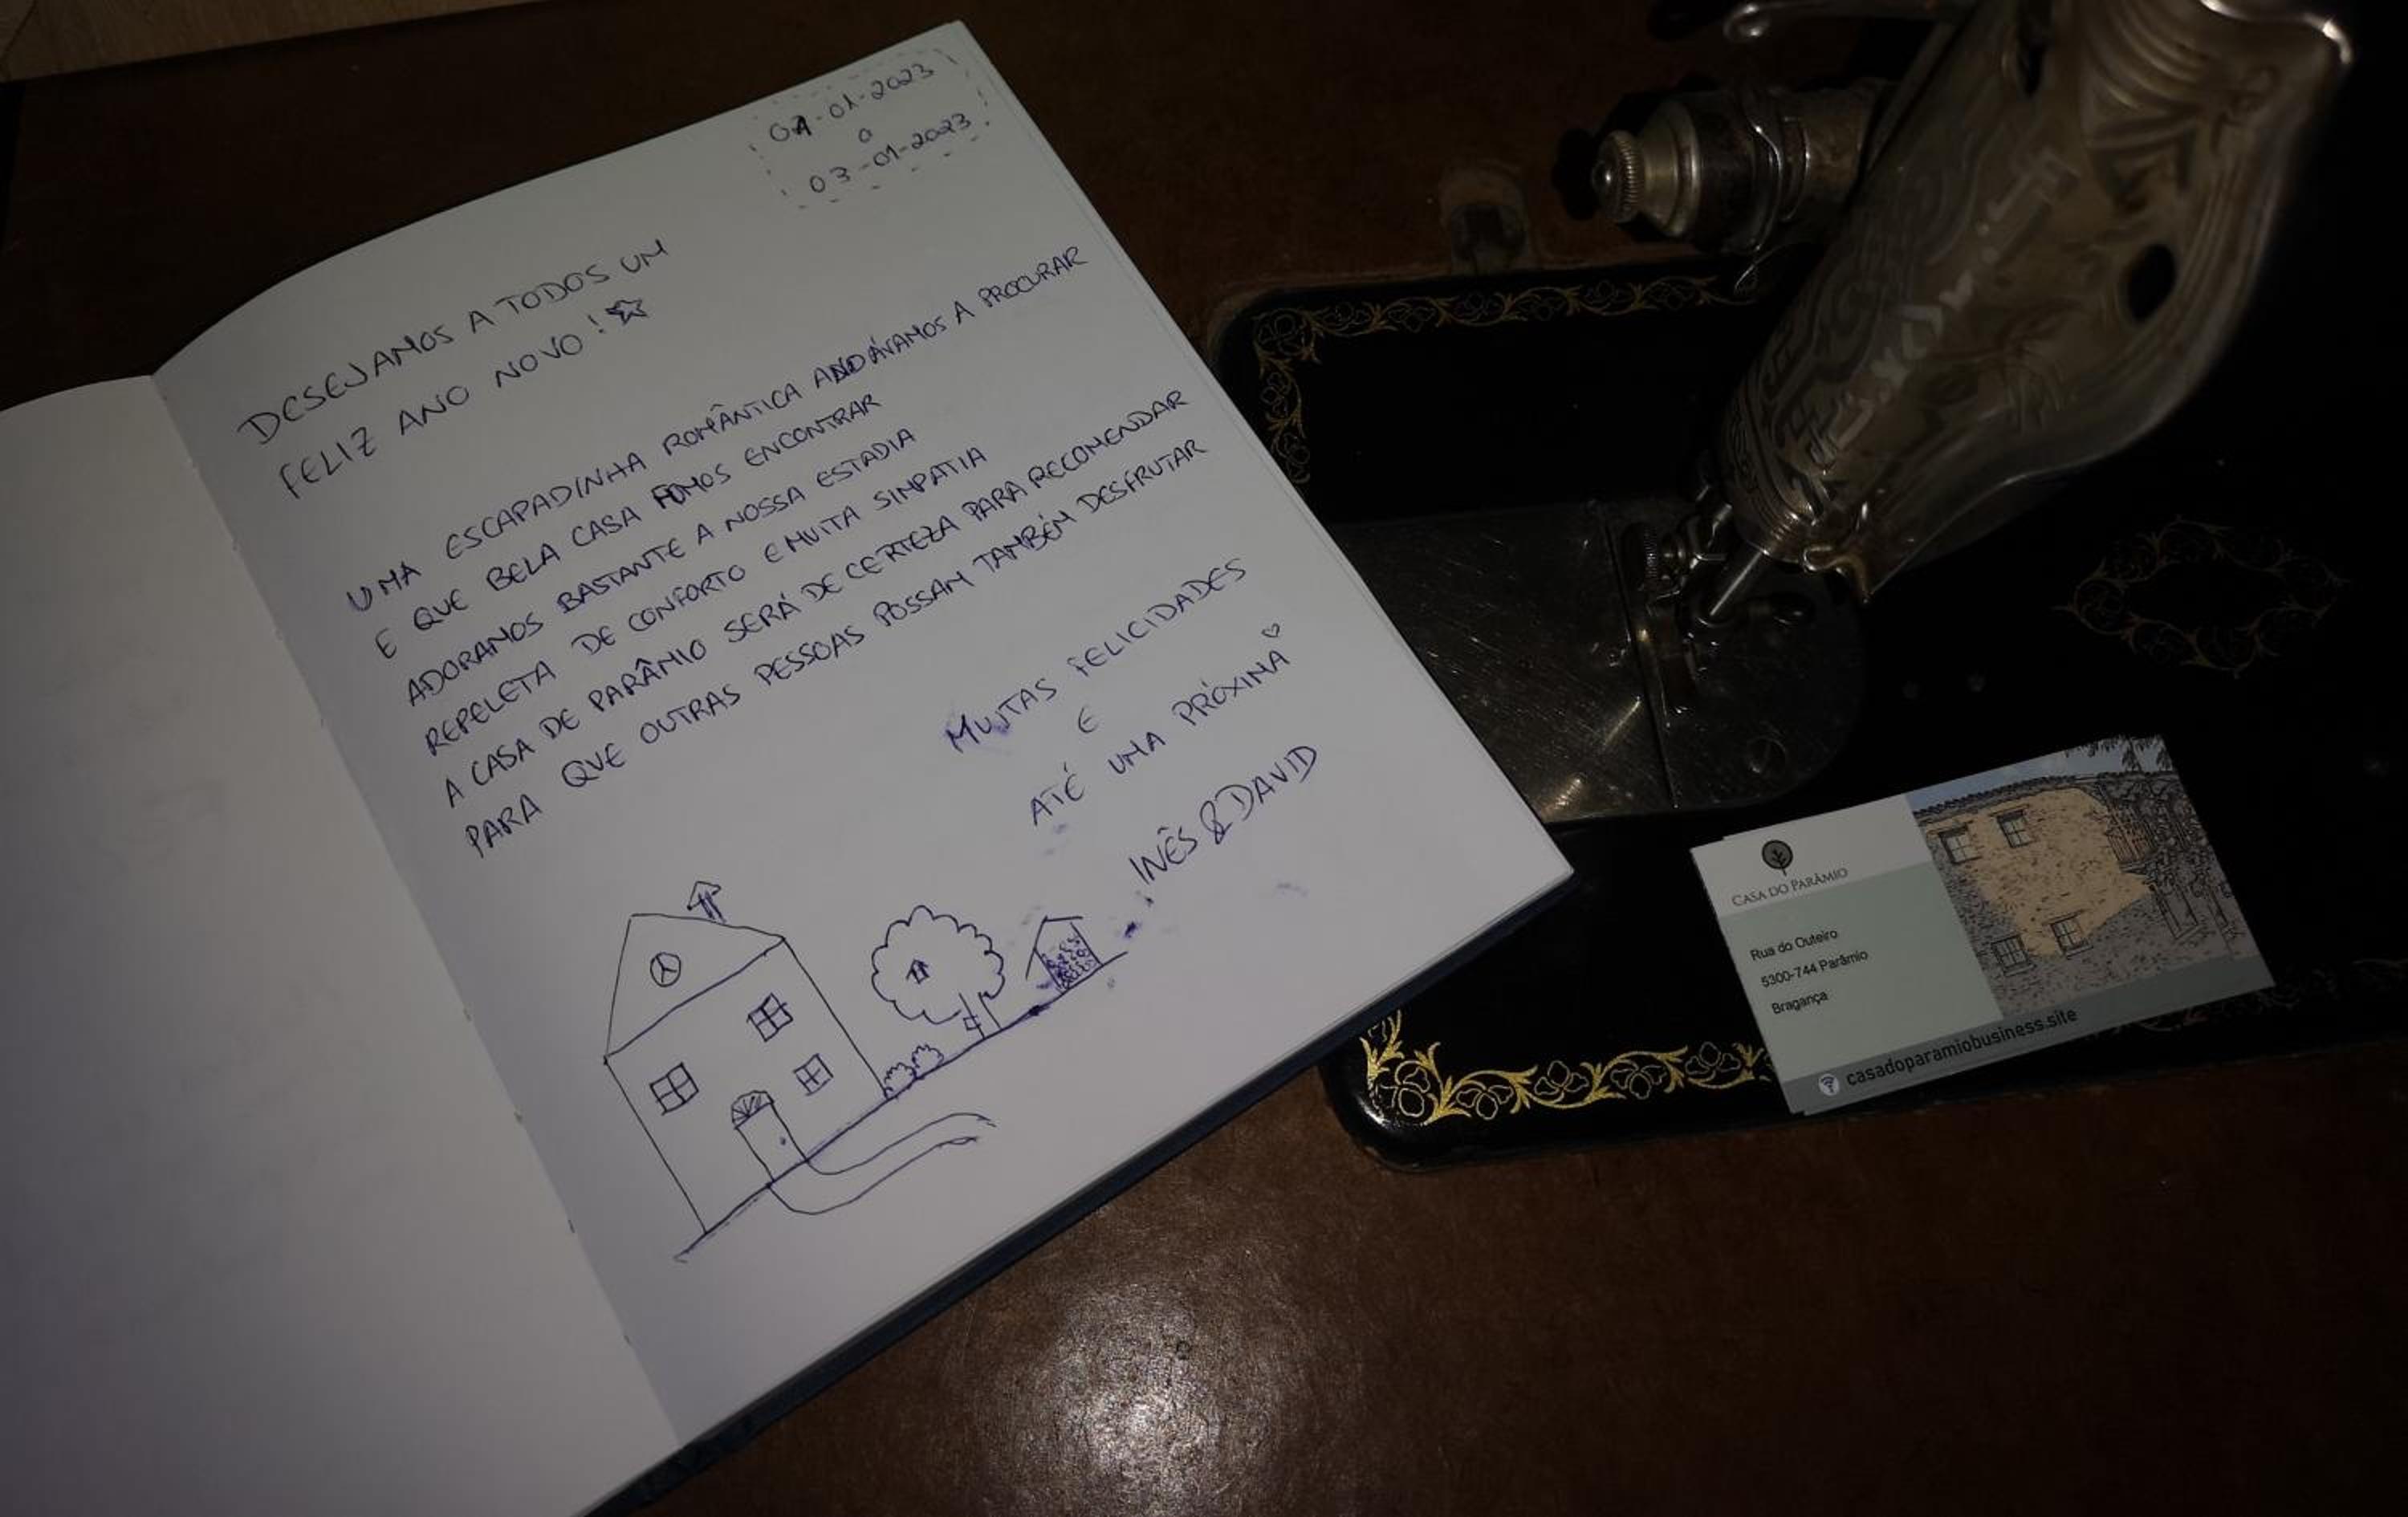 01-01-2023
a
03-01-2023
DESEJAMOS A TODOS UM
FELIZ ANO NOVO!
UMA ESCAPADINHA ROMÂNTICA ANDÁVAMOS A PROCURAR
E QUE BELA CASA FOMOS ENCONTRAR
ADORAMOS BASTANTE A NOSSA ESTADIA
REPELETA DE CONFORTO E MUITA SIMPATIA
A CASA DE PARÂMIO SERÁ DE CERTEZA PARA RECOMENDAR
PARA QUE OUTRAS PESSOAS POSSAM TAMBÉM DESFRUTAR
MUITAS FELICIDADES
E
ATÉ UMA PRÓXIMA
INÊS & DAVID
CASA DO PARÂMIO
Rua do Outeiro
5300-744 Parâmio
Bragança
casadoparamiobusiness.site